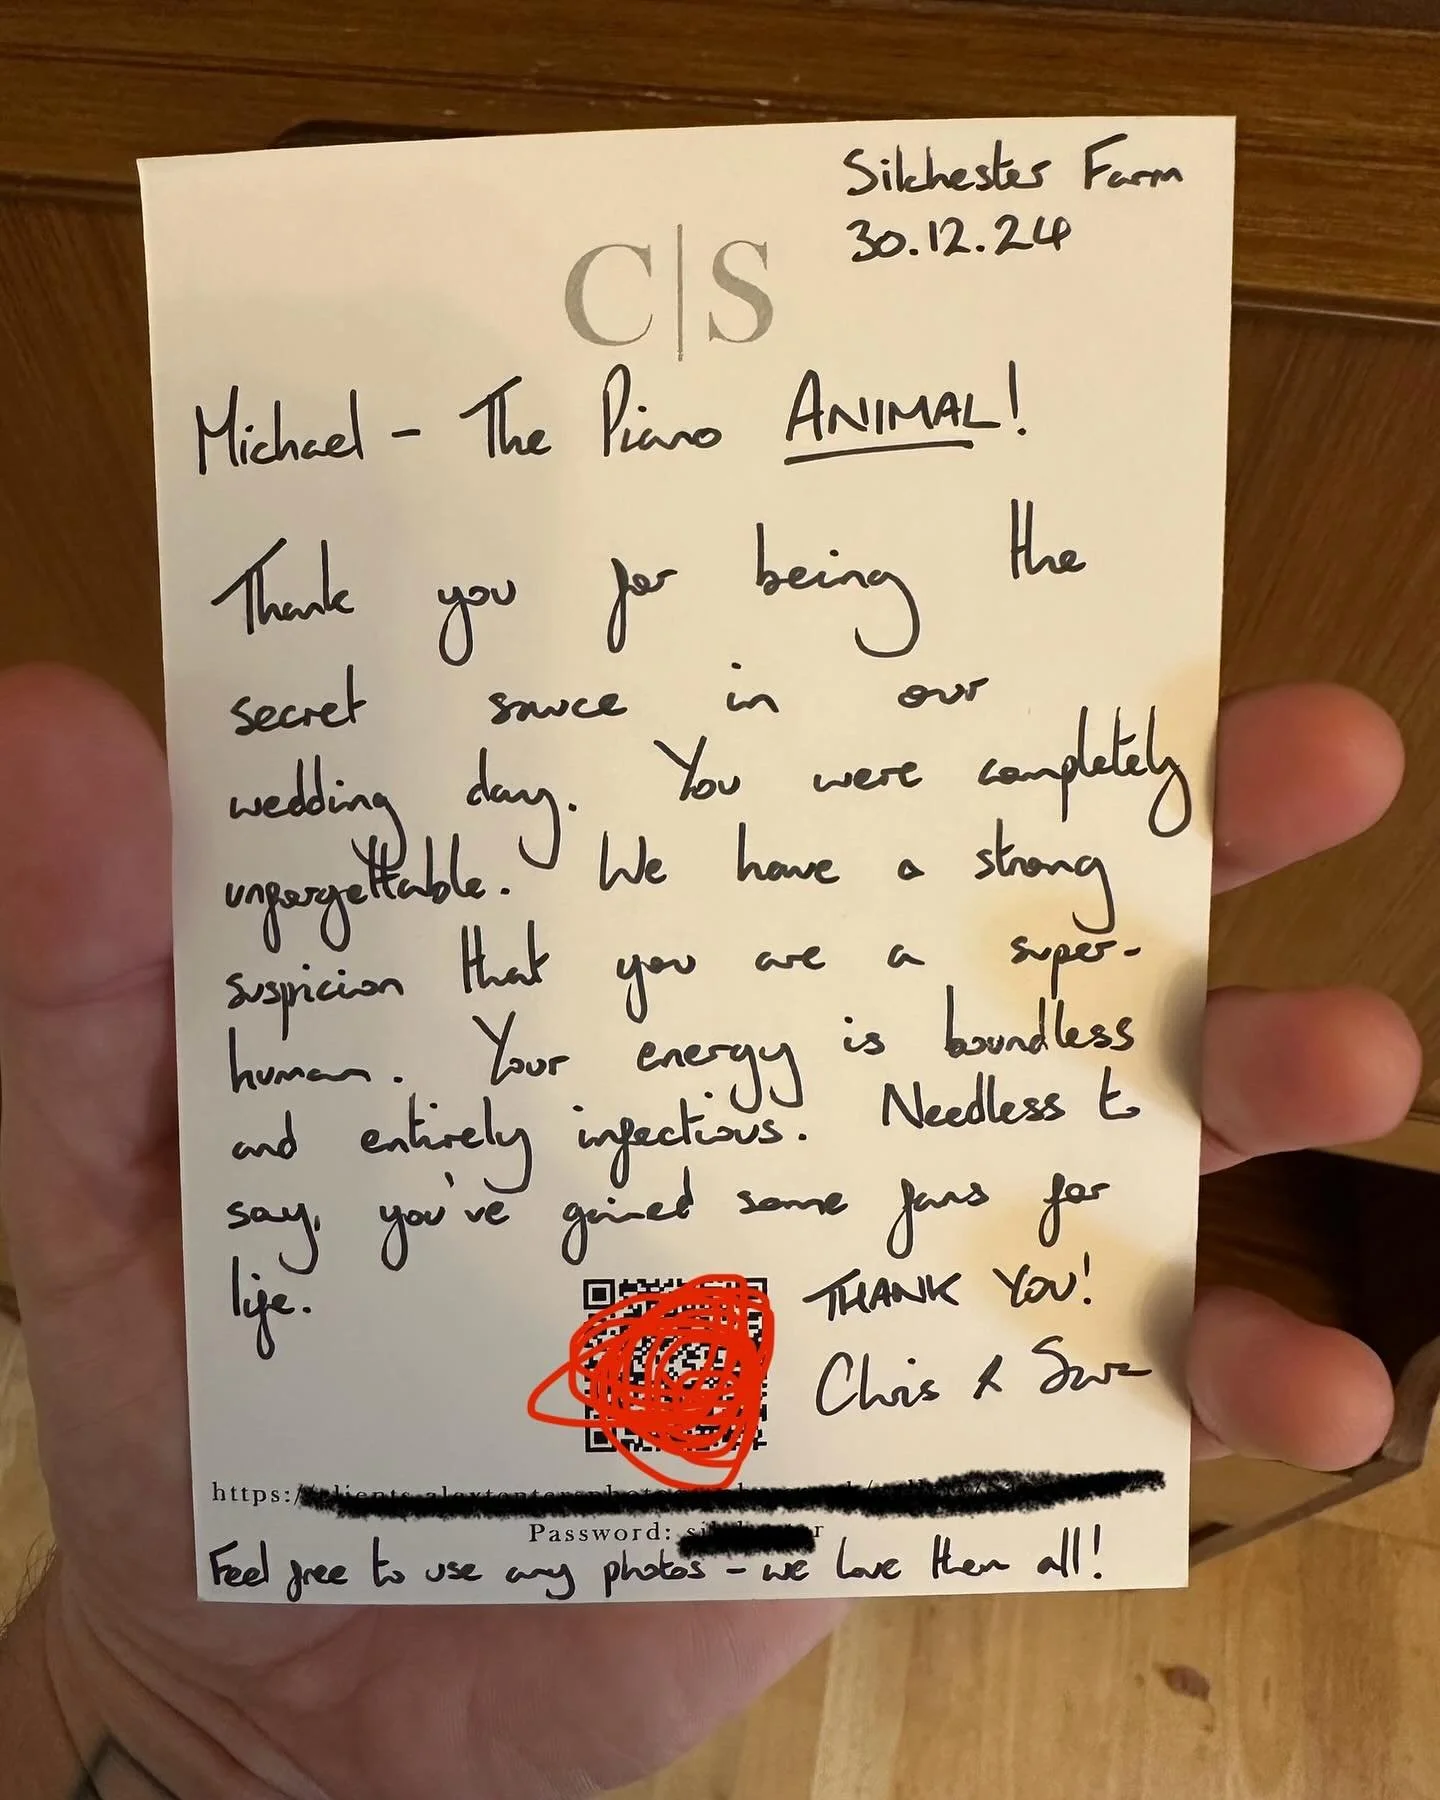 Silchester Farm
30.12.24
C|S
Michael - The Piano ANIMAL!
Thank you for being the
secret sauce in our
wedding day. You were completely
unforgettable. We have a strong
suspicion that you are a super-
human. Your energy is boundless
and entirely infectious. Needless to
say, you've gained some fans for
life.
THANK YOU!
Chris &
https:/
Password:
Feel free to use any photos - we love them all!